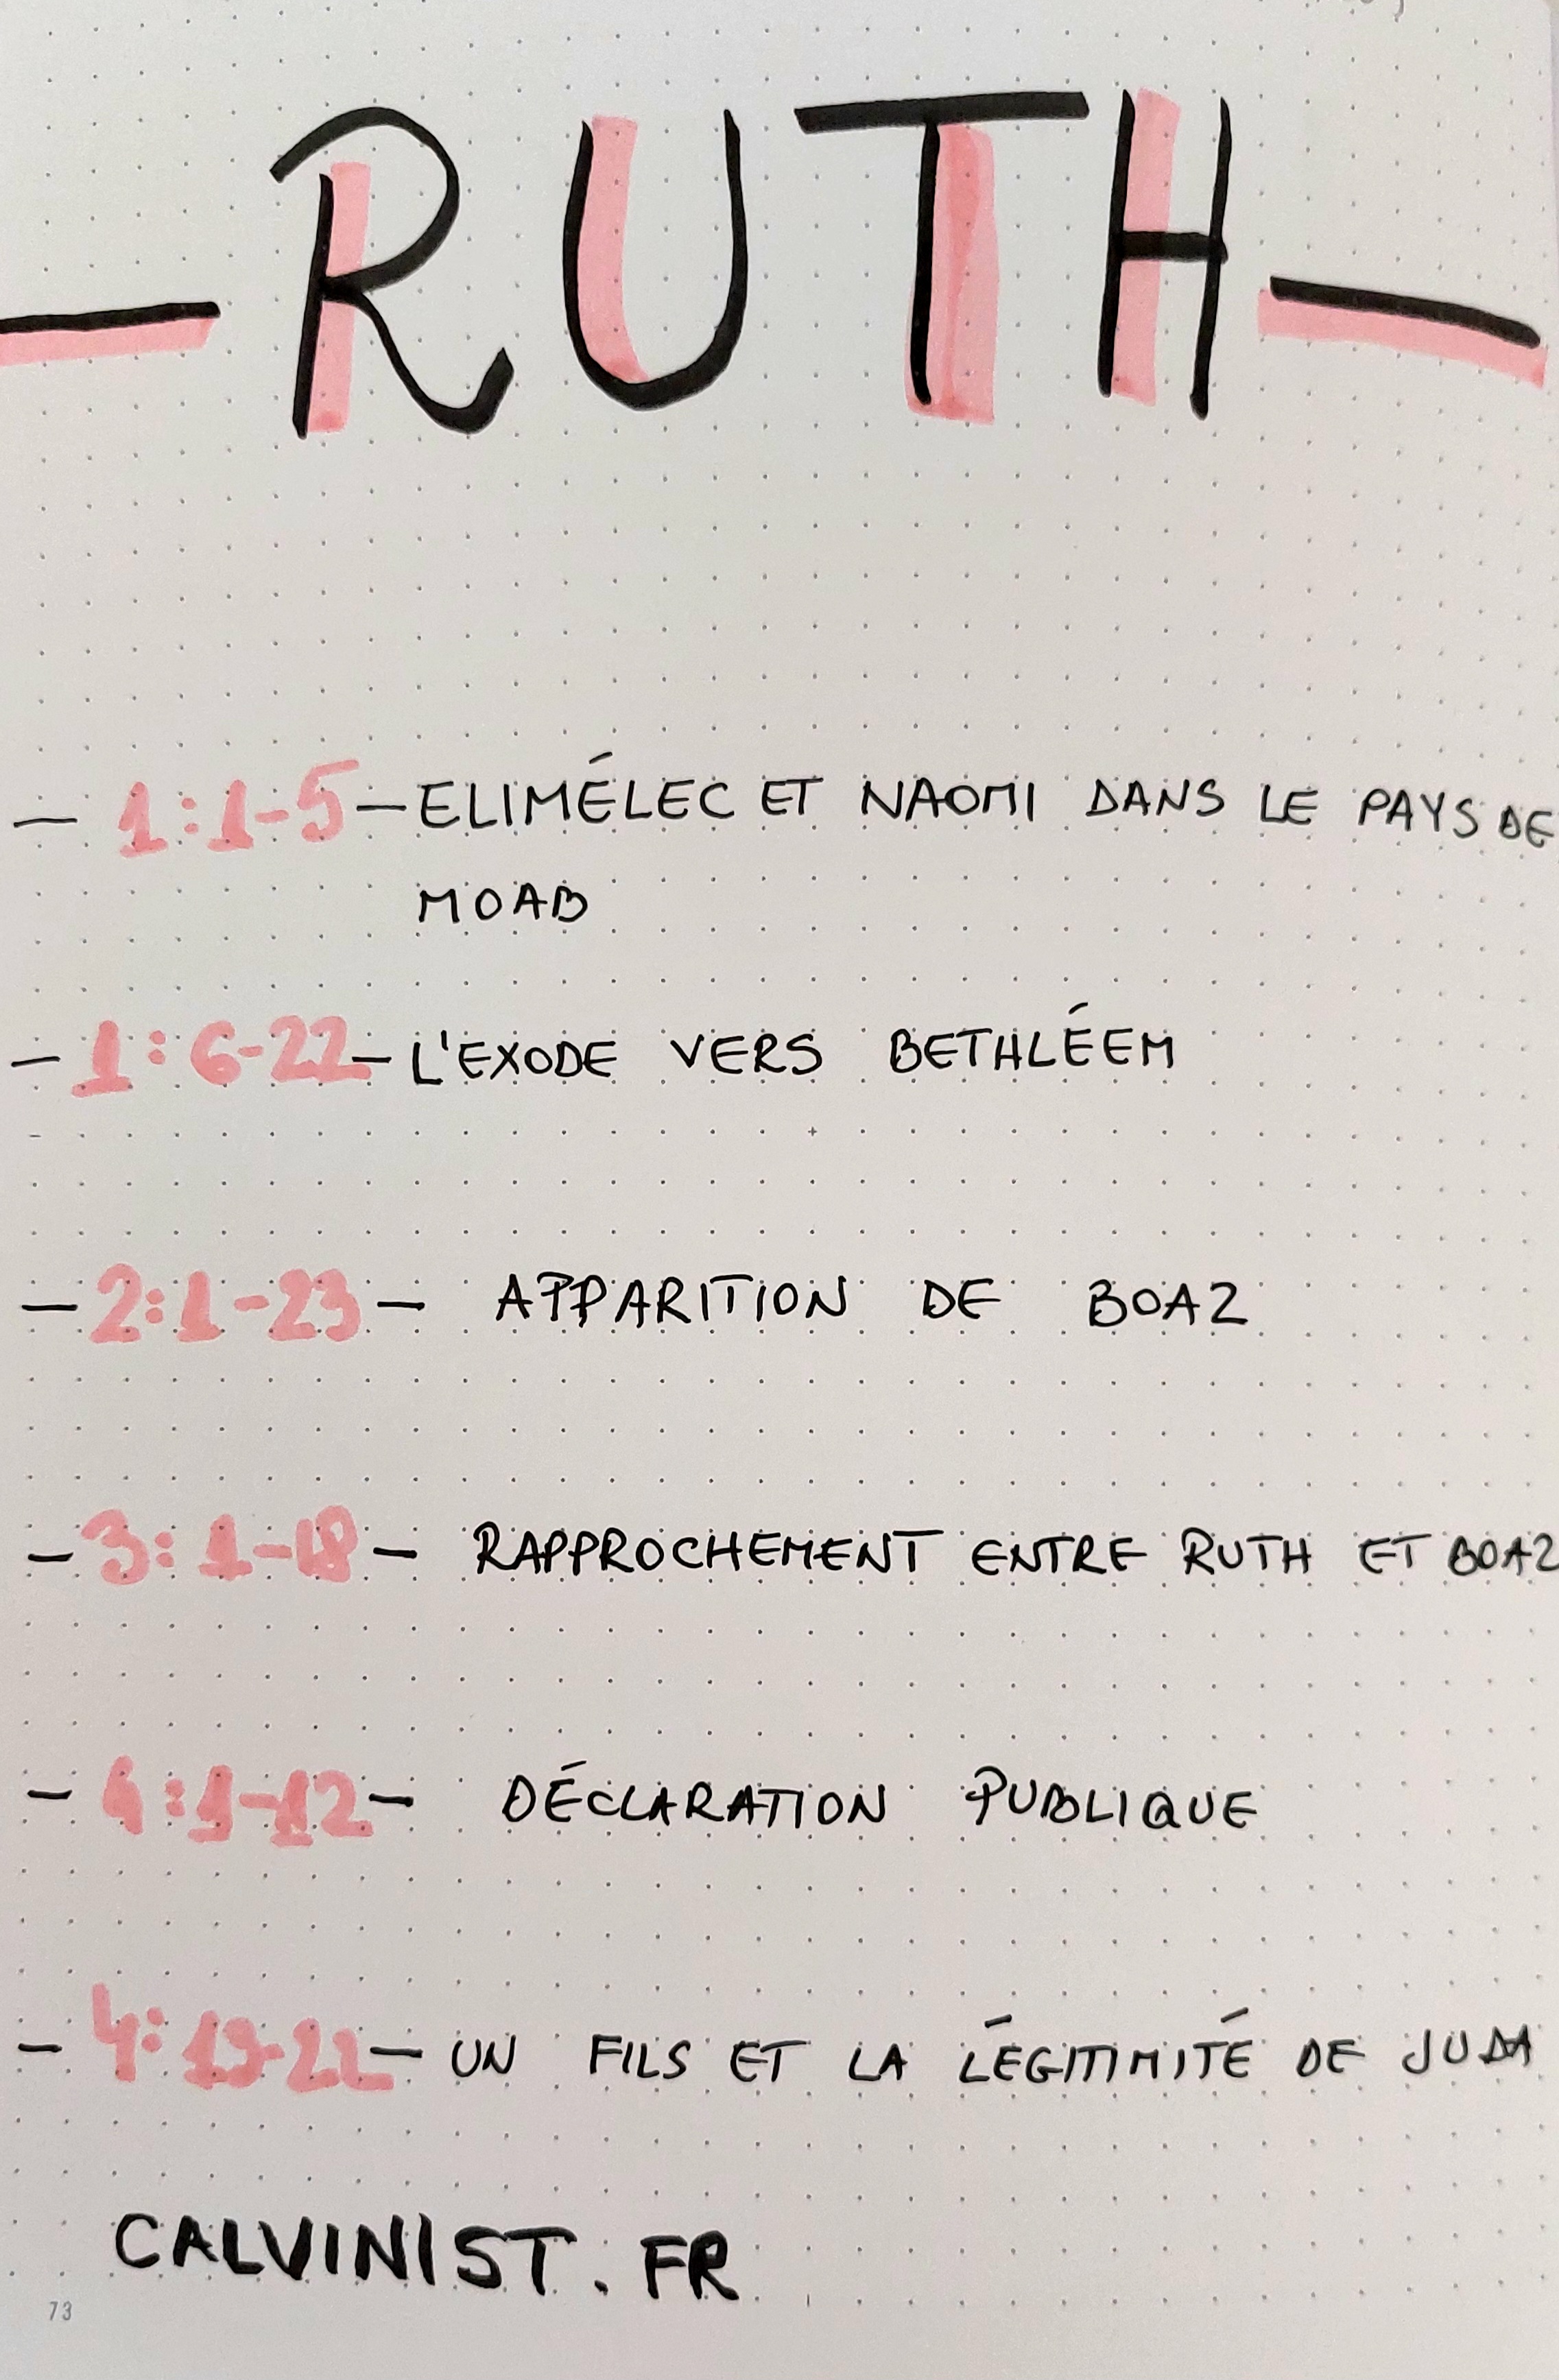 — RUTH —
— 1:1-5 — ELIMÉLEC ET NAOMI DANS LE PAYS DE
MOAB
— 1:6-22 — L'EXODE VERS BETHLÉEM
— 2:1-23 — APPARITION DE BOAZ
— 3:1-18 — RAPPROCHEMENT ENTRE RUTH ET BOAZ
— 4:1-12 — DÉCLARATION PUBLIQUE
— 4:13-22 — UN FILS ET LA LÉGITIMITÉ DE JUDA
CALVINIST.FR
73